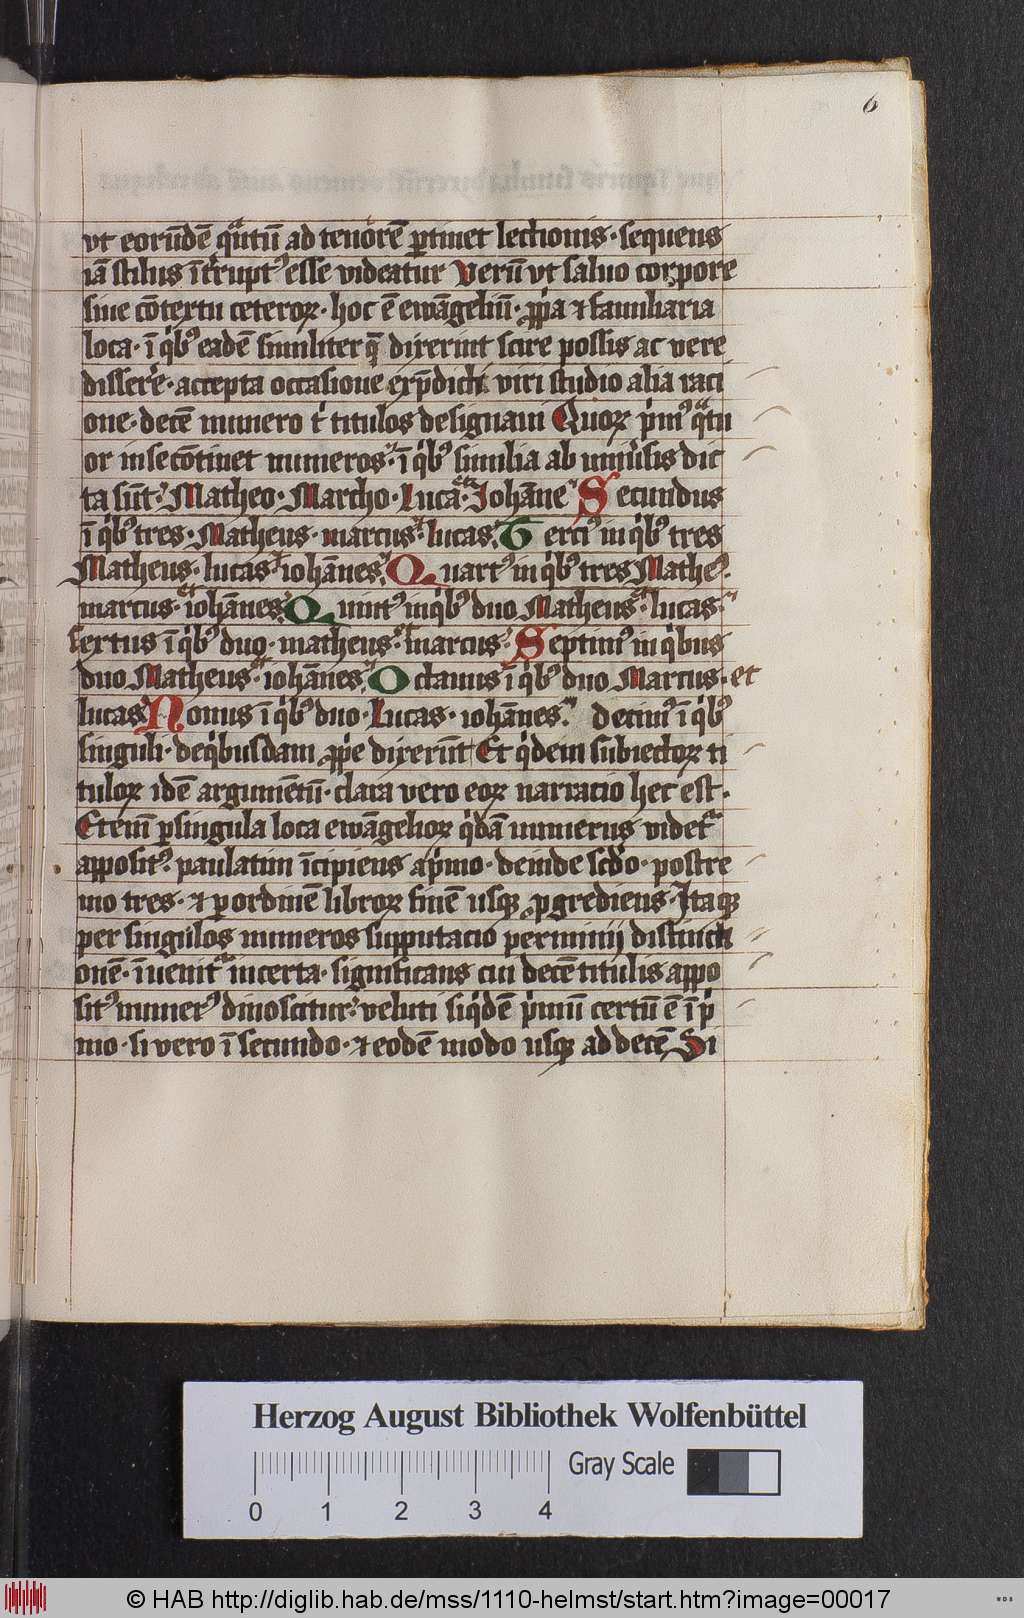 6
vt eorūdē qᵃntū ad tenorē ꝑtinet lectionis · sequens
iā stilus īt͛rupt᷒ esse videatur Verū vt saluo corpore
siue cōtextu ceteroꝝ · hoc ē ewāgeliū · ꝓp̄a ⁊ familiaria
loca · ī qⁱb᷒ eadē similiter q̄ dixerint scire possis ac vere
disser͛e · accepta occasione exp̄dicti viri studio alia raci
one · decē numero tⁱ titulos designaui Quoꝝ pⁱm᷒ qᵃtu
or in se cōtinet numeros · ī qⁱb᷒ similia ab uniu͛sis dic
ta sūt · Matheo · Marcho · Luca · et Iohāne Secundus
ī qⁱb᷒ tres · Matheus · marcus · lucas · Terci᷒ in qⁱb᷒ tres
Matheus · lucas · iohānes · Quart᷒ in qⁱb᷒ tres Mathe᷒ ·
marcus · et iohānes · Quint᷒ in qⁱb᷒ duo Matheus · et lucas ·
sextus ī qⁱb᷒ duo · matheus · et marcus · Septim᷒ in qⁱbus
duo Matheus · et iohānes · Octauus ī qⁱb᷒ duo Marcus · et
lucas Nonus ī qⁱb᷒ duo · Lucas · iohānes · decim᷒ ī qⁱb᷒
singuli · de qⁱbusdam ꝓp̄e dixerūt Et qⁱdem subiectoꝝ ti
tuloꝝ idē argumētū · clara vero eoꝝ narracio hec est ·
Etenī ꝑ singula loca ewāgelioꝝ qⁱdā numerus videtᷣ
apposit᷒ · paulatim īcipiens a pⁱmo · deinde scd̄o · postre
mo tres · ⁊ ꝑ ordinē libroꝝ finē usqꝫ ꝓgrediens · Itaqꝫ
per singulos numeros supputacio per minij distincti
onē · īuenitᷣ incerta · significans cui decē titulis appo
sit᷒ numer᷒ dinoscitur · veluti siqⁱdē pⁱmū certū ē ī pⁱ
mo · si vero ī secundo · ⁊ eodē modo usqꝫ ad decē Si
Herzog August Bibliothek Wolfenbüttel
Gray Scale
0 1 2 3 4
© HAB http://diglib.hab.de/mss/1110-helmst/start.htm?image=00017